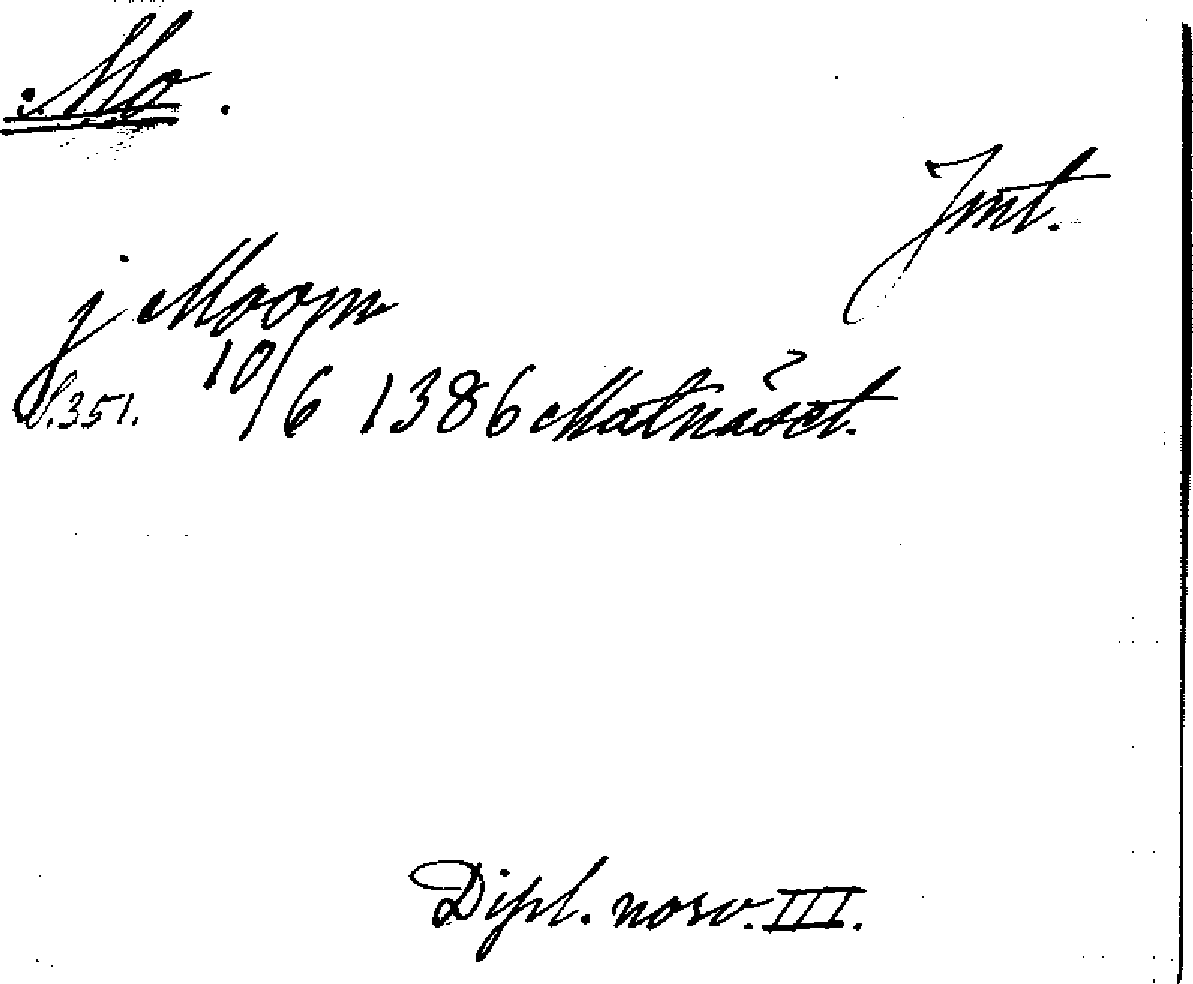 Mo.
Jmt.
j Moom
S. 351. 10/6 1386 Matnäset.
Dipl. norv. III.